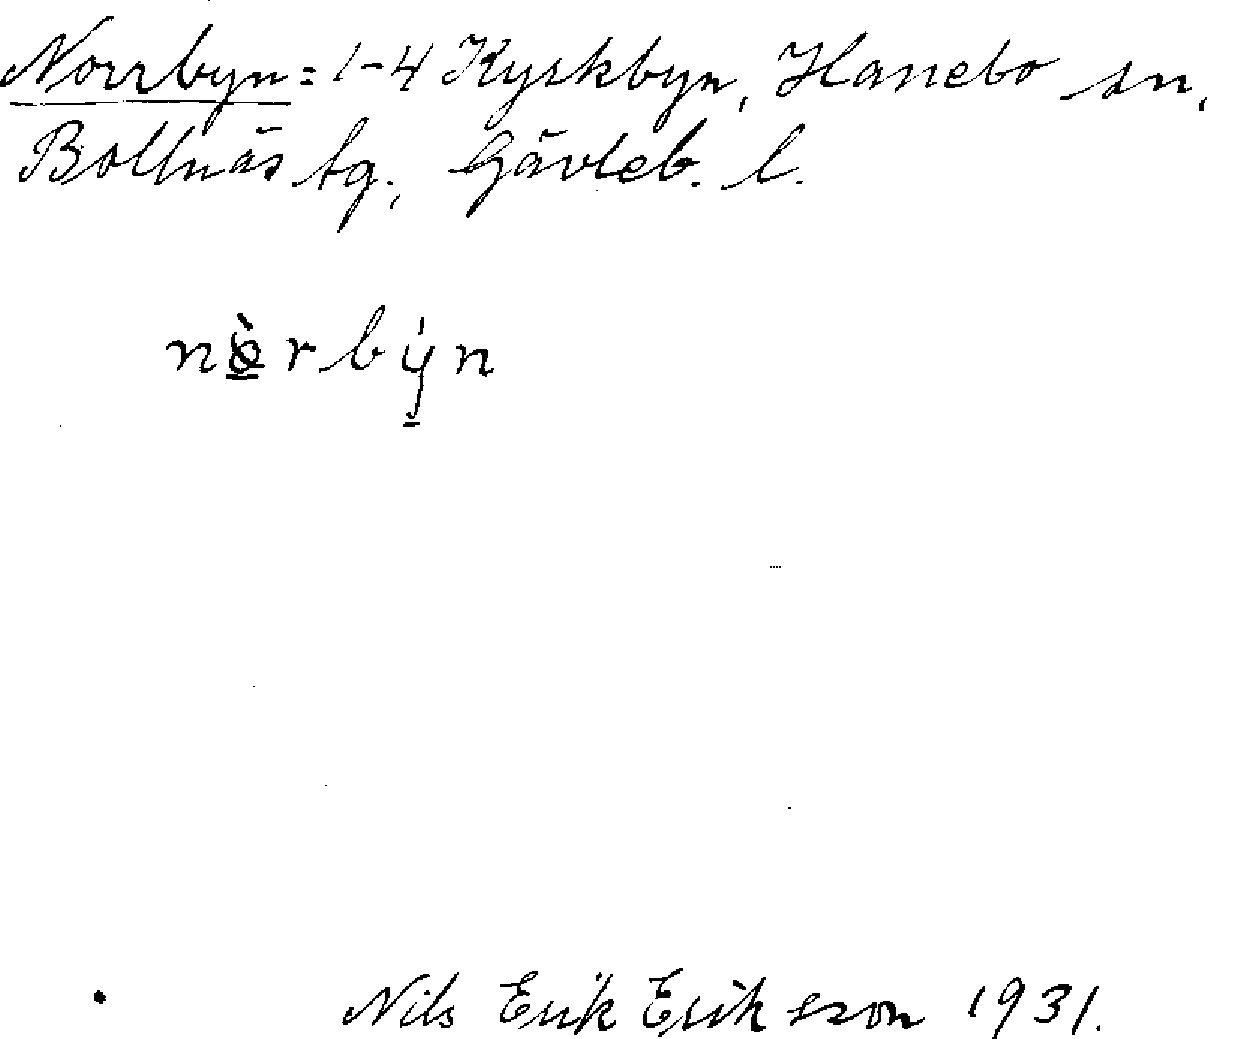 Norrbyn = 1-4 Kyrkbyn, Hanebo sn,
Bollnäs tg., Gävleb. l.
nòrbýn
Nils Erik Eriksson 1931.